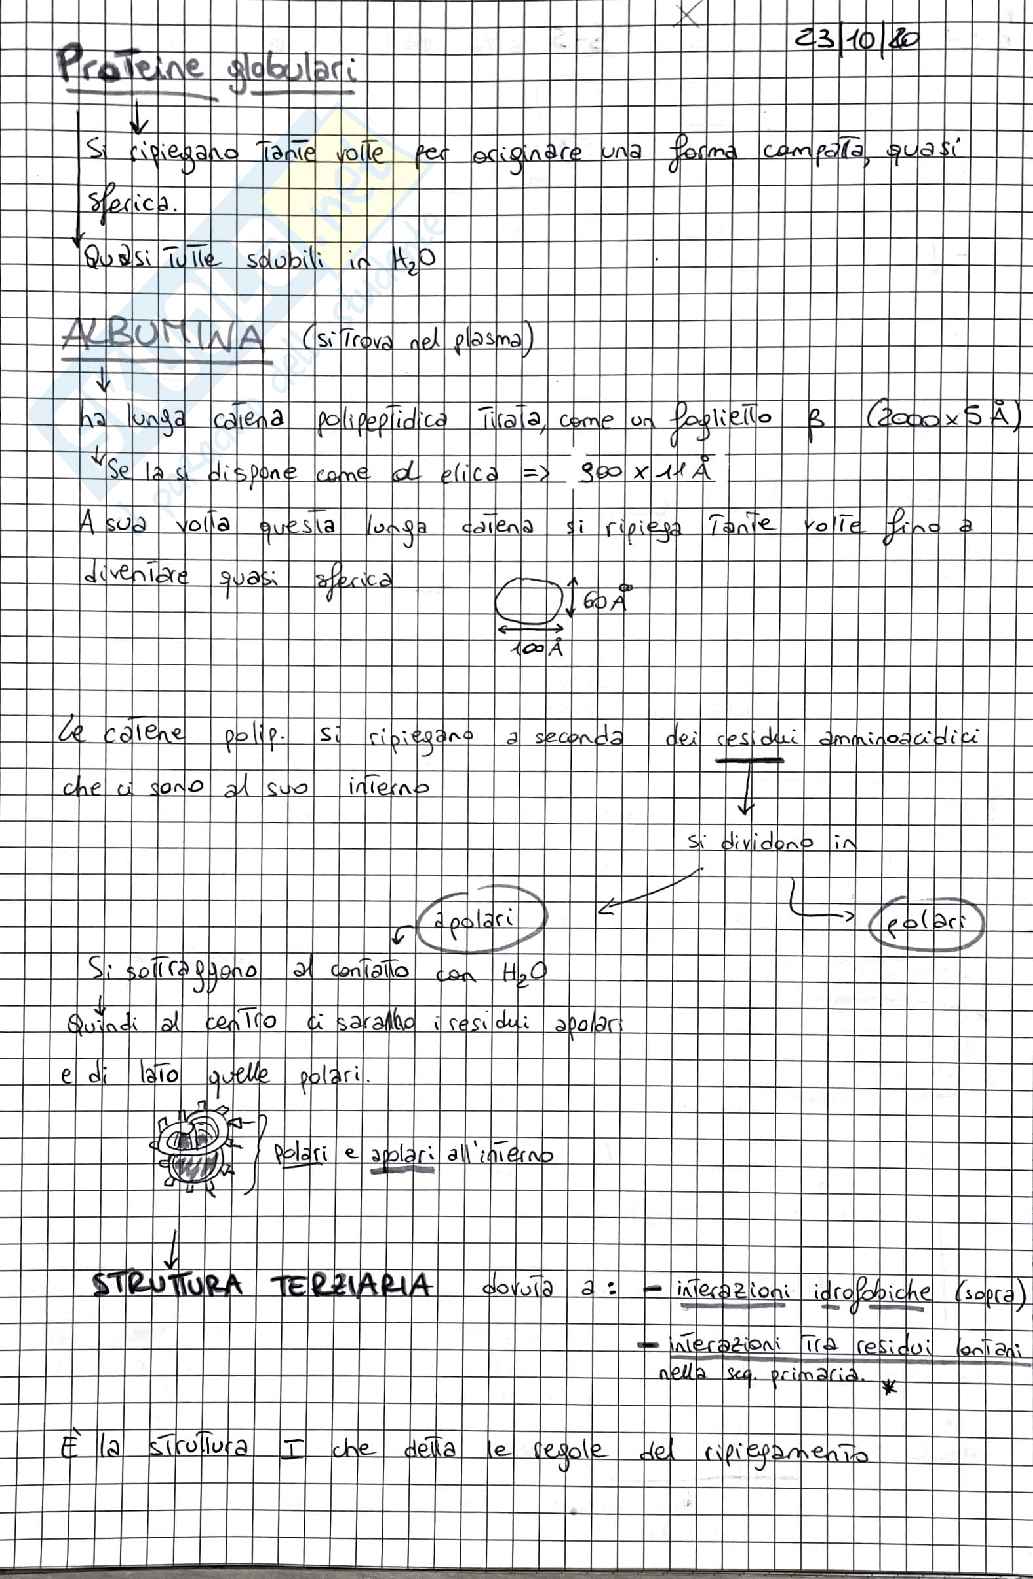 23/10/20
Proteine globulari
Si ripiegano tante volte per originare una forma compatta, quasi
sferica.
Quasi tutte solubili in H₂O
ALBUMINA (si trova nel plasma)
ha lunga catena polipeptidica tirata, come un foglietto β (2000 x 5 Å)
Se la si dispone come α elica => 900 x 11 Å
A sua volta questa lunga catena si ripiega tante volte fino a
diventare quasi sferica
60 Å
100 Å
Le catene polip. si ripiegano a seconda dei residui amminoacidici
che ci sono al suo interno
si dividono in
apolari
polari
Si sottraggono al contatto con H₂O
Quindi al centro ci saranno i residui apolari
e di lato quelle polari.
polari e apolari all'interno
STRUTTURA TERZIARIA dovuta a: - interazioni idrofobiche (sopra)
- interazioni tra residui lontani
nella seq. primaria. *
È la struttura I che detta le regole del ripiegamento